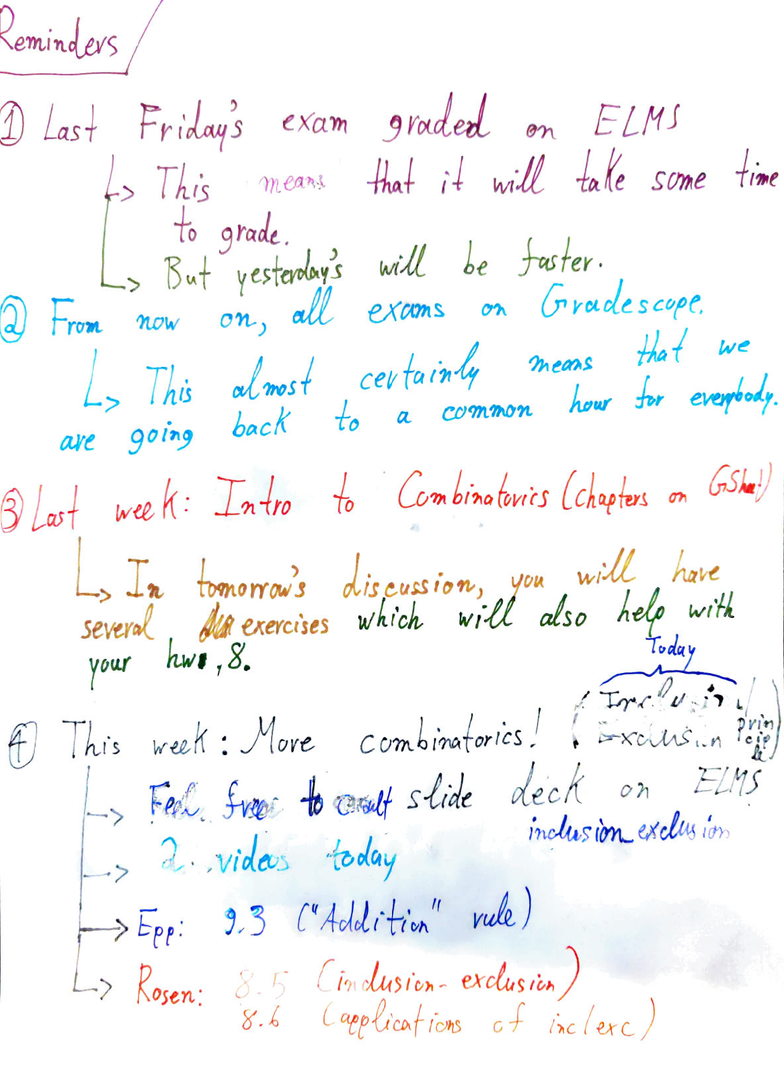 Reminders
① Last Friday's exam graded on ELMS
↳ This means that it will take some time
to grade.
↳ But yesterday's will be faster.
② From now on, all exams on Gradescope.
↳ This almost certainly means that we
are going back to a common hour for everybody.
③ Last week: Intro to Combinatorics (chapters on GSheet)
↳ In tomorrow's discussion, you will have
several exercises which will also help with
your hw, 8.
Today
④ This week: More combinatorics! (Inclusion/
Exclusion principle)
→ Feel free to consult slide deck on ELMS
inclusion exclusion
→ 2 videos today
→ Epp: 9.3 ("Addition" rule)
↳ Rosen: 8.5 (inclusion-exclusion)
8.6 (applications of inc/exc)